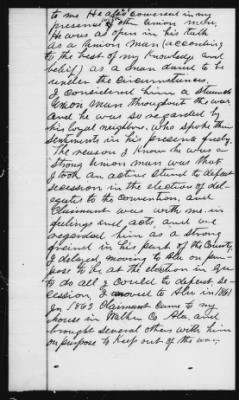 to me He also conversed in my
presence of other Union men,
He was as open in his talk
as a Union man (according
to the best of my knowledge and
belief) as a man dared to be
under the circumstances,
I considered him a staunch
Union man throughout the war
and he was so regarded by
his loyal neighbors, who spoke their
sentiments in his presence freely.
The reason I know he was a
strong Union man was that
I took an active stand to defeat
secession in the election of del-
egates to the convention, and
Claimant was with me in
feelings and acts and we
regarded him as a strong
friend in his part of the County,
I delayed moving to Ala on pur-
pose to be at the election in Ga
to do all I could to defeat se-
cession, I moved to Ala in 1861
In 1863 Claimant came to my
house in Walker Co Ala, and
brought several others with him
on purpose to keep out of the war,